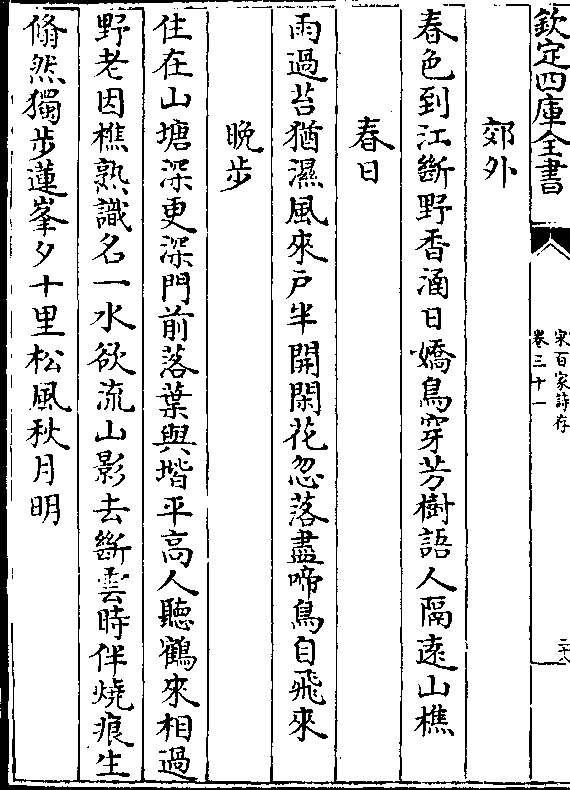 欽定四庫全書
宋百家詩存
卷三十一
二十八
郊外
春色到江斷野香涵日嬌鳥穿芳樹語人隔遠山樵
春日
雨過苔猶濕風來戶半開閑花忽落盡啼鳥自飛來
晚步
住在山塘深更深門前落葉與堦平高人聽鶴來相過
野老因樵熟識名一水欲流山影去斷雲時伴燒痕生
翛然獨步蓮峯夕十里松風秋月明